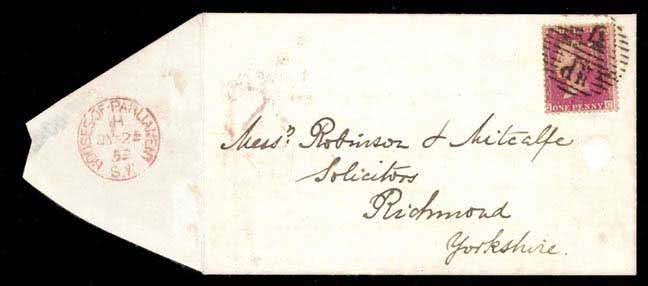 HOUSES·OF·PARLIAMENT
H
S.W.
ONE PENNY
Messrs Robinson & Metcalfe
Solicitors
Richmond
Yorkshire.